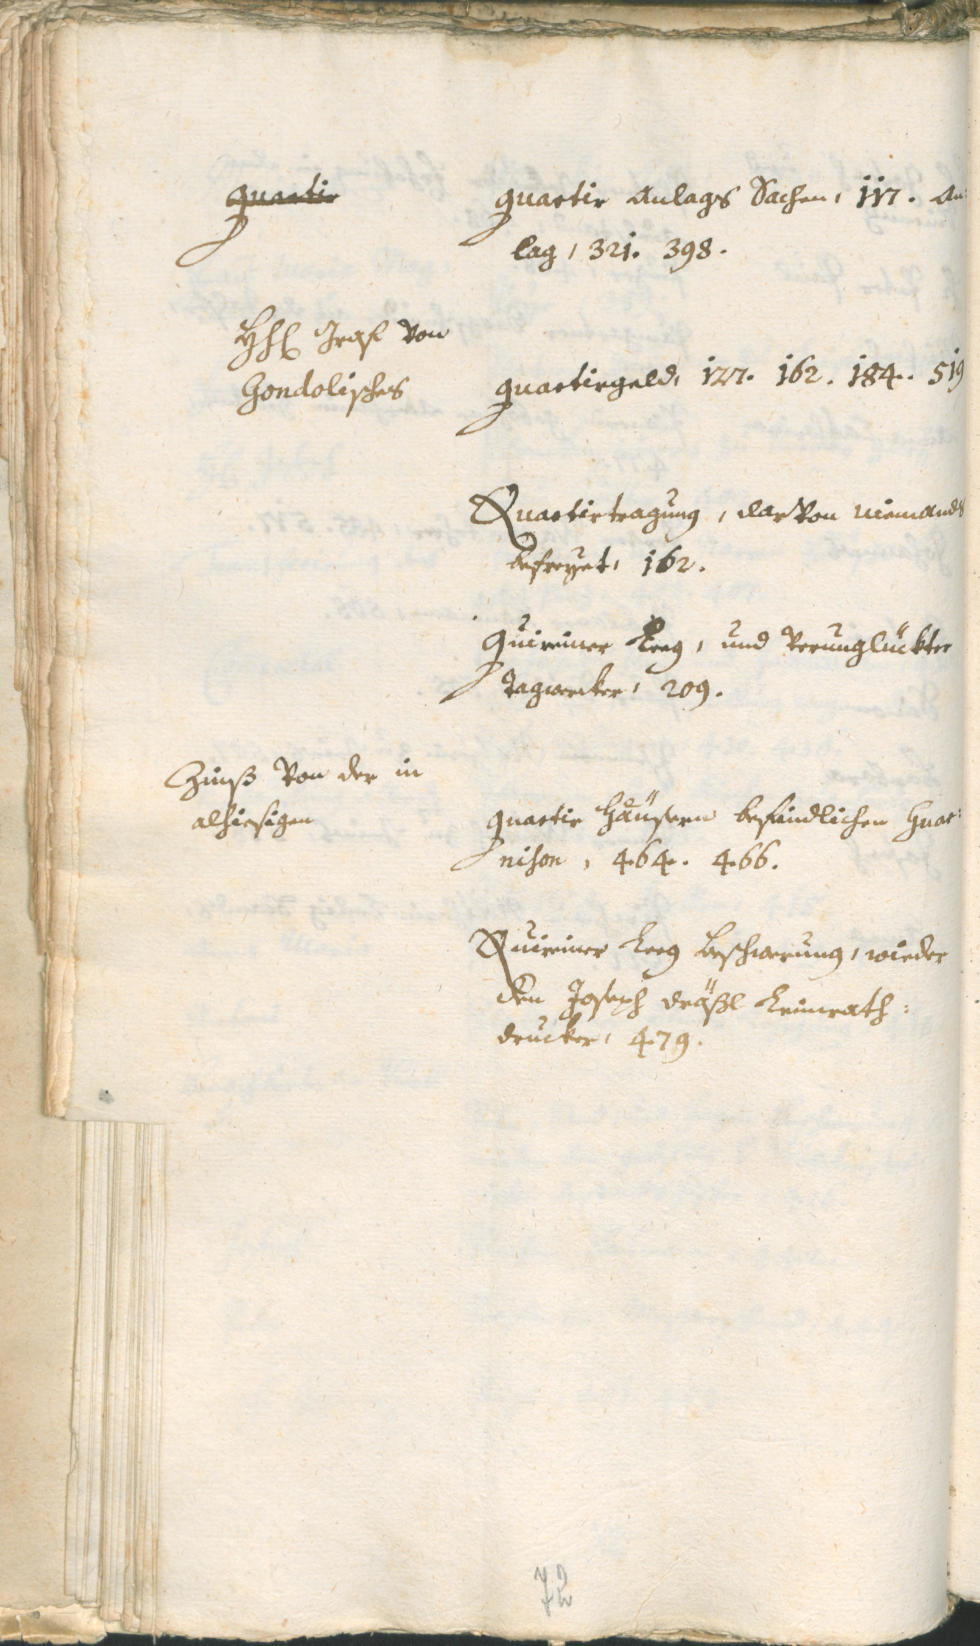 quartir
quartir Anlags Sachen, 117. An:
lag, 321. 398.
Von
Gondolisches
quartirgeld, 127. 162. 184. 519
Quartirtragung, darVon niemands
befreyet, 162.
Quiriner Veruunglückter
Tagwercker, 209.
Zinß Von der in
alhiesigen
quartir Häusern befindlichen Guar:
nison, 464. 466.
Quiriner beschwerung, wieder
den Joseph
drucker, 479.
72